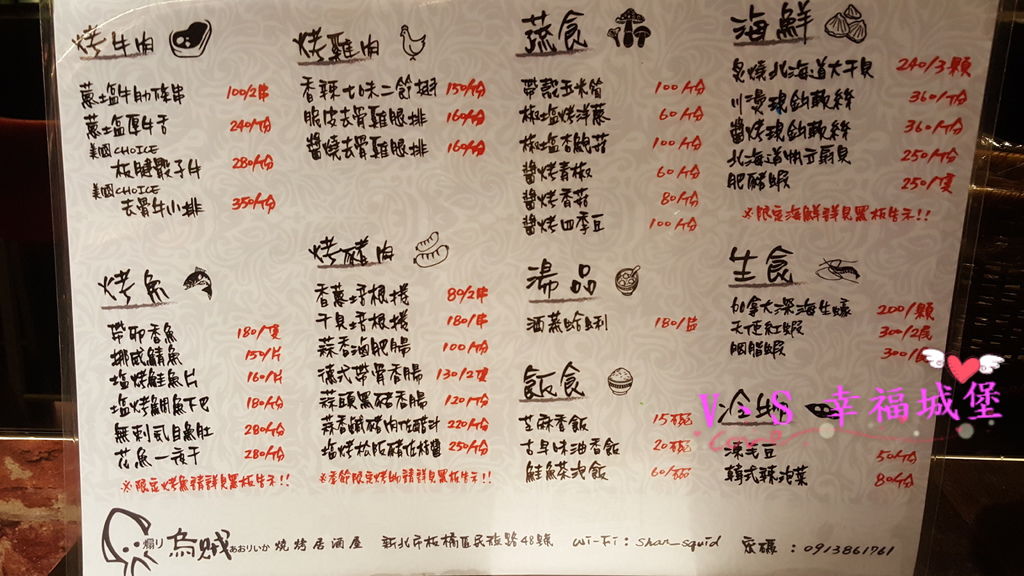 烤牛肉
蔥塩牛肋條串 100/2串
蔥塩厚牛舌 240/份
美國CHOICE
板腱骰子牛 280/份
美國CHOICE
去骨牛小排 350/份
烤雞肉
香辣七味二節翅 150/份
脆皮去骨雞腿排 160/份
醬燒去骨雞腿排 160/份
蔬食
帶殼玉米筍 100/份
椒塩烤洋蔥 60/份
椒塩杏鮑菇 100/份
醬烤青椒 60/份
醬烤香菇 80/份
醬烤四季豆 100/份
海鮮
炙燒北海道大干貝 240/3顆
川燙魷魚 360/份
醬烤魷魚 360/份
北海道帆立扇貝 250/份
肥豬蝦 250/隻
※限定海鮮詳見黑板告示!!
烤魚
帶卵香魚 180/隻
挪威鯖魚 150/片
塩烤鮭魚片 160/片
塩烤鯛魚下巴 180/份
無刺虱目魚肚 280/份
花魚一夜干 280/份
※限定烤魚請詳見黑板告示!!
烤豬肉
香蔥培根捲 80/2串
干貝培根捲 180/串
蒜香鹹肥腸 100/份
德式帶骨香腸 130/2隻
蒜頭黑豬香腸 120/份
蒜香 220/份
塩烤松阪豬佐特醬 250/份
※季節限定烤物請詳見黑板告示!!
湯品
酒蒸蛤蜊 180/盅
飯食
芝麻香飯 15/碗
古早味油香飯 20/碗
鮭魚茶泡飯 60/碗
生食
加拿大深海生蠔 200/顆
天使紅蝦 300/2隻
胭脂蝦 300/
冷物
凍毛豆 50/份
韓式辣泡菜 80/份
V‧S 幸福城堡
煽り 烏賊 あおりいか 燒烤居酒屋 新北市板橋區民族路48號 Wi-Fi：shan_squid 密碼：0913861761